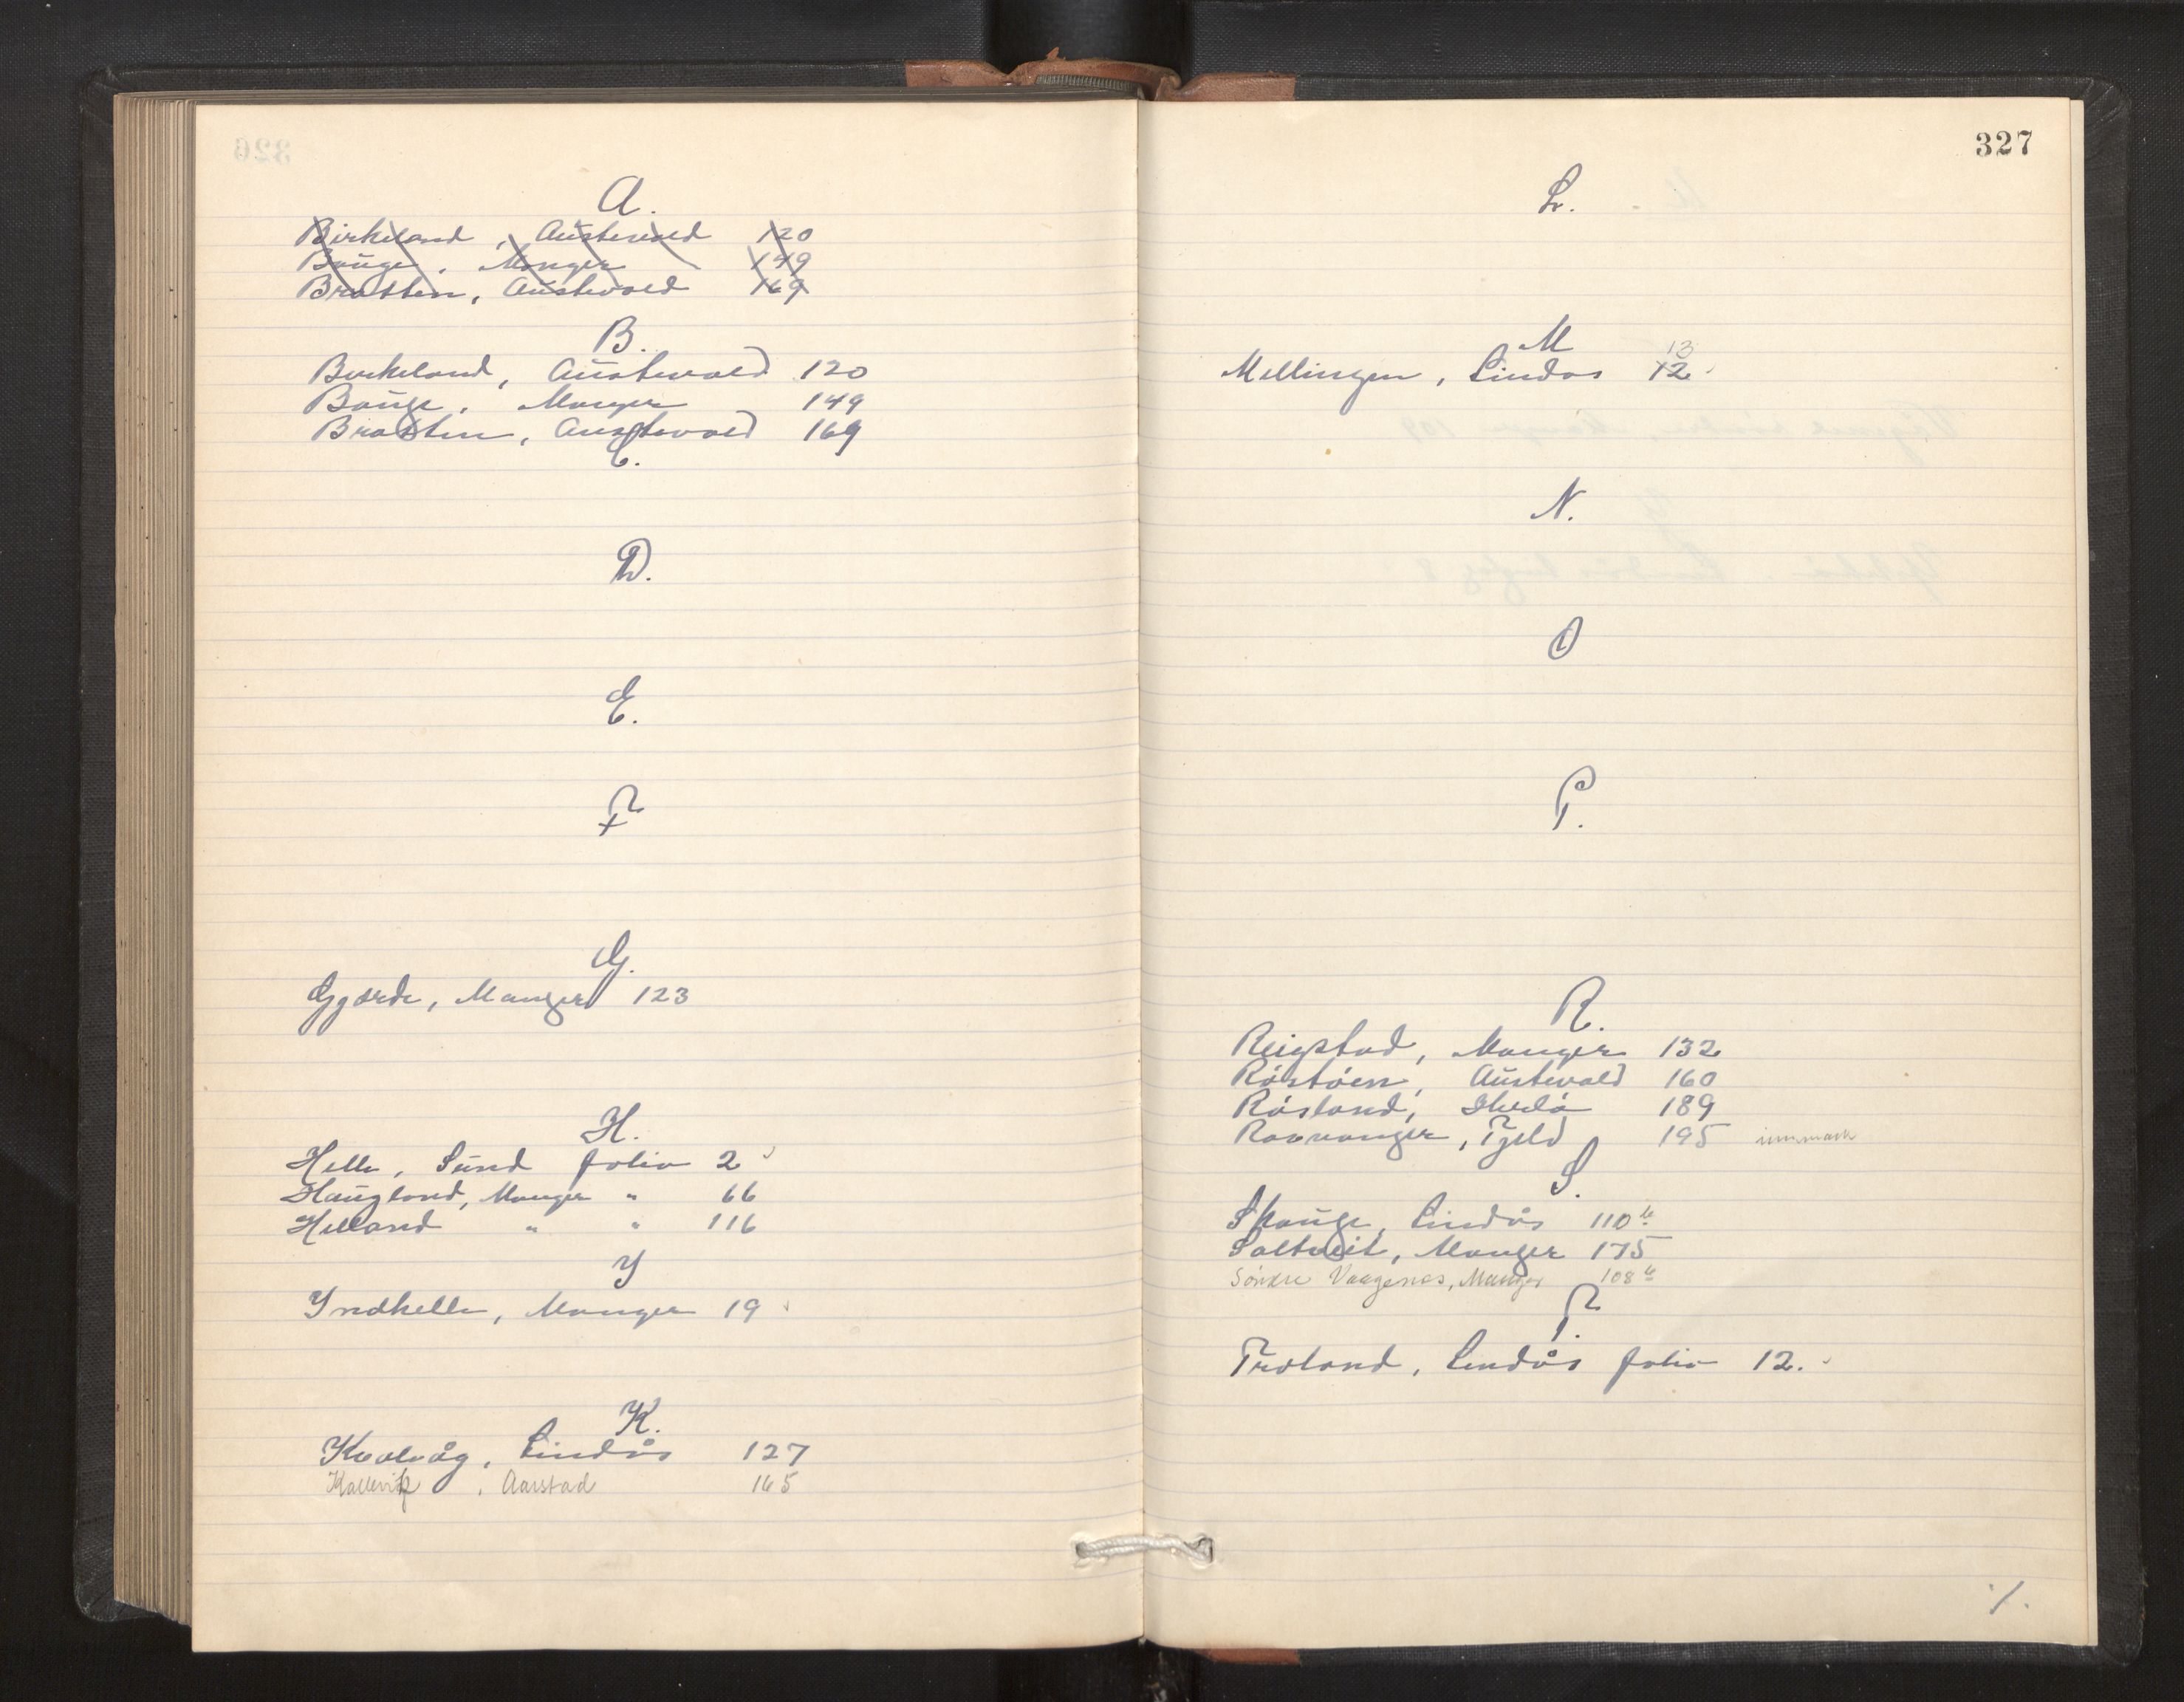 A.
Birkeland, Austevold 120
Bauge, Manger 149
Bratten, Austevold 169
B.
Birkeland, Austevold 120
Bauge, Manger 149
Bratten, Austevold 169
C.
D.
E.
F
G.
Gjærde, Manger 123
H.
Helle, Sund folio 2
Haugland, Manger " 66
Helland " " 116
Y
Yndhelle, Manger 19
K.
Kvalvåg, Lindås 127
Kallevik, Aarstad 165
327
L.
M
13
Mellingen, Lindås 12
N.
O
P.
R.
Reigstad, Manger 132
Röstöen, Austevold 160
Rösland, Herlö 189
Ramvanger, Fjeld 195 innmark
S.
Skauge, Lindås 110 b
Saltveit, Manger 175
Söndre Vaagenes, Manger 108 b
T.
Troland, Lindås folio 12.